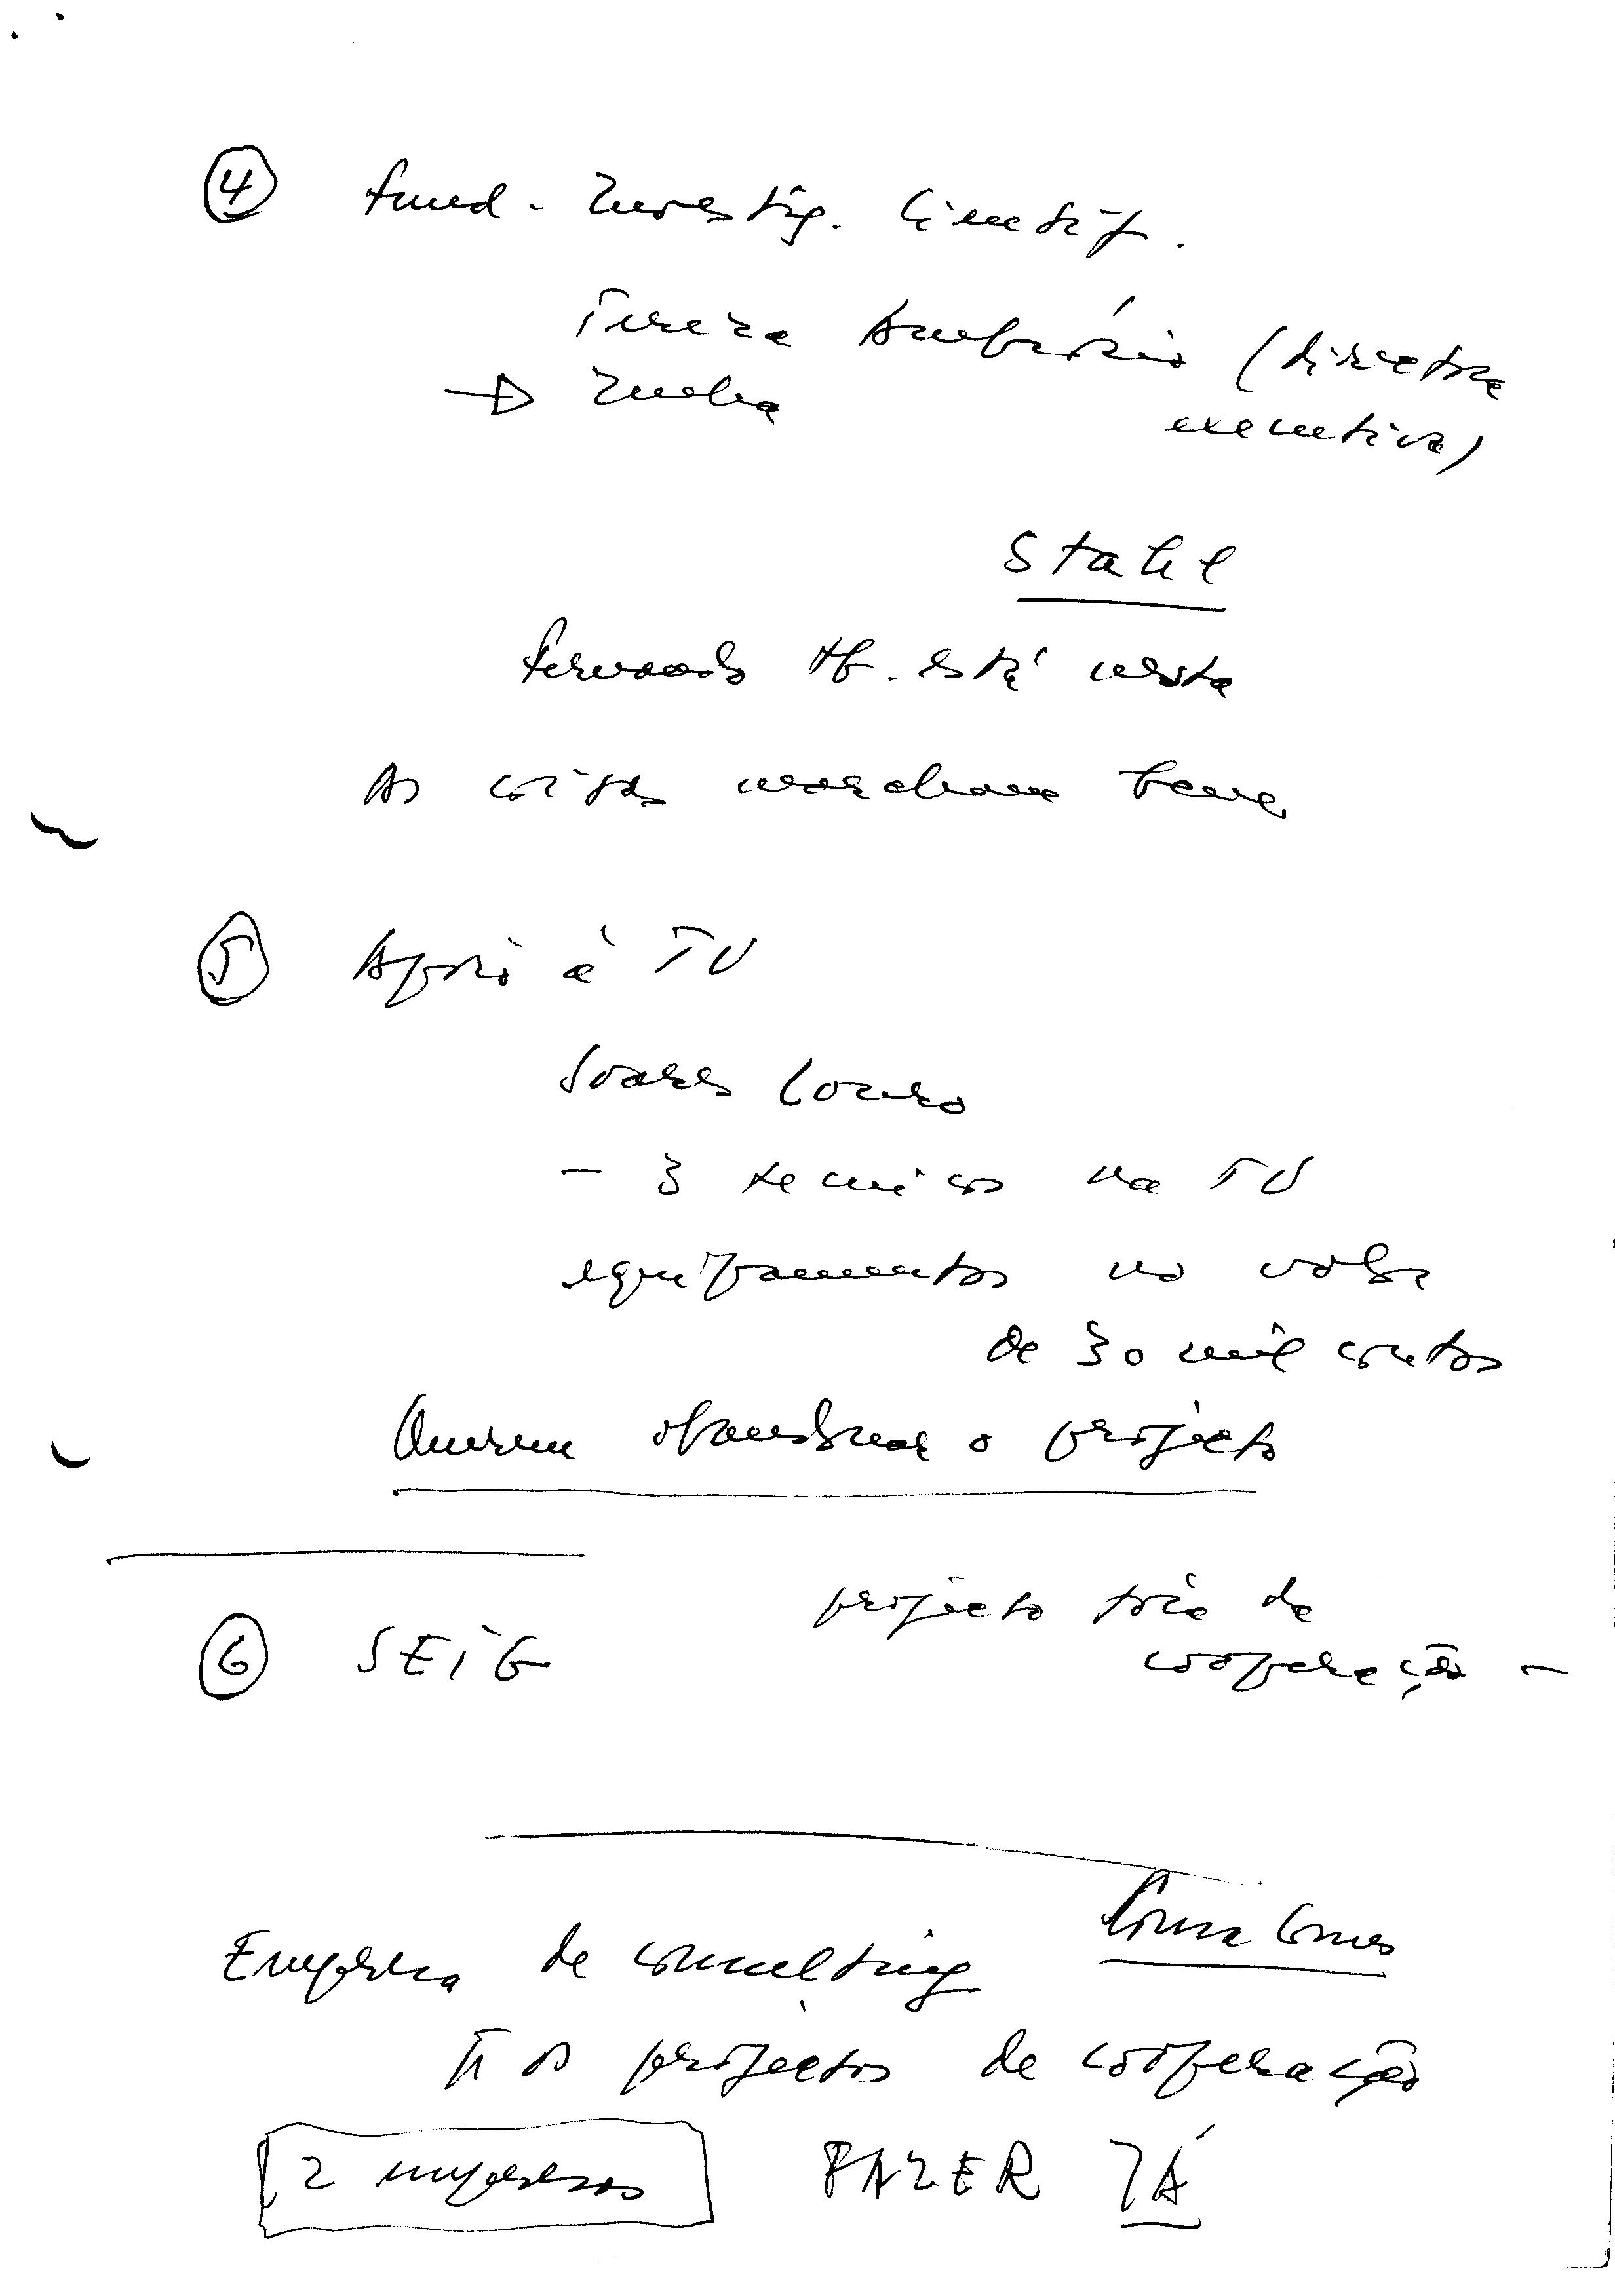 ④ Fund. Investig. Científ.
Tereza Ambrósio (directora
→ executiva)
Stahl
Fernando está nesta
As coisas marcham bem
⑤ Apoio à TV
Soares Louro
- 3 tecnicos na TV
equipamentos no valor
de 30 mil contos
Querem abandonar o projecto
⑥ SEIG projecto de
cooperação -
Empresa de consulting
os projectos de cooperação
2 empresas FAZER JÁ